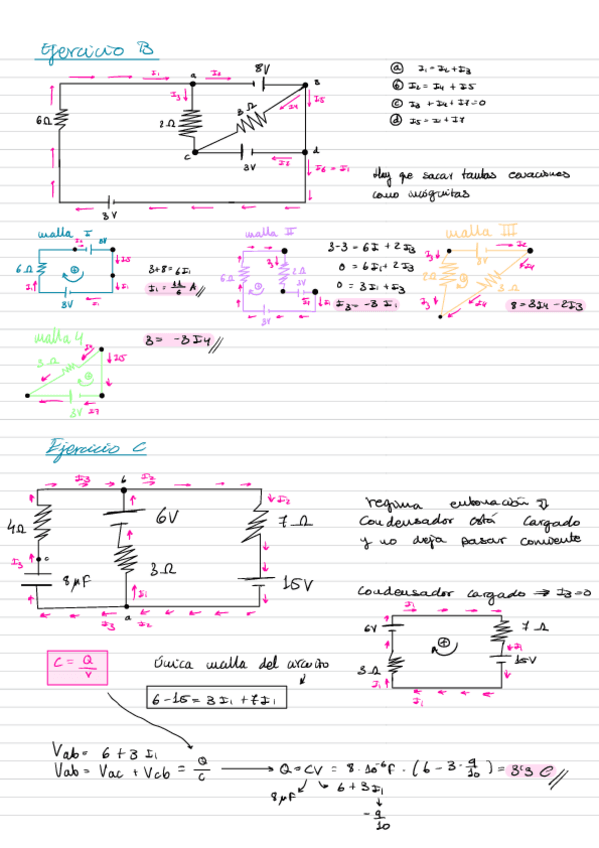 Ejercicio B
8V
a
I1
I2
B
I3
6Ω
2Ω
3Ω
I4
I5
c
d
3V
I6
I6 = I1
3V
ⓐ I1 = I2 + I3
ⓑ I2 = I4 + I5
ⓒ I3 + I4 + I7 = 0
ⓓ I5 = I1 + I7
Hay que sacar tantas ecuaciones
como incógnitas
malla I
8V
6Ω
I5
I1
3V
3+8 = 6I1
I1 = 11/6 A
malla II
6Ω
2Ω
3V
3V
3-3 = 6I1 + 2I3
0 = 6I1 + 2I3
0 = 3I1 + I3
I3 = -3 I1
malla III
3V
I2
I3
2Ω
I4
3Ω
I3
8 = 3I4 - 2I3
malla 4
3Ω
I4
I5
3V
I7
3 = -3I4
Ejercicio C
I3
b
I2
4Ω
6V
7Ω
I2
I3
c
3Ω
8μF
15V
I1
a
I3
I2
regimen estacionario
condensador está cargado
y no deja pasar corriente
condensador cargado → I3=0
I1
6V
7Ω
3Ω
15V
I1
I1
C = Q/V
única malla del circuito
6-15 = 3I1 + 7I1
Vab = 6 + 3 I1
Vab = Vac + Vcb = Q/C → Q = CV = 8·10⁻⁶F · (6 - 3 · 9/10) = 3'3 C
8μF
6 + 3I1
-9/10